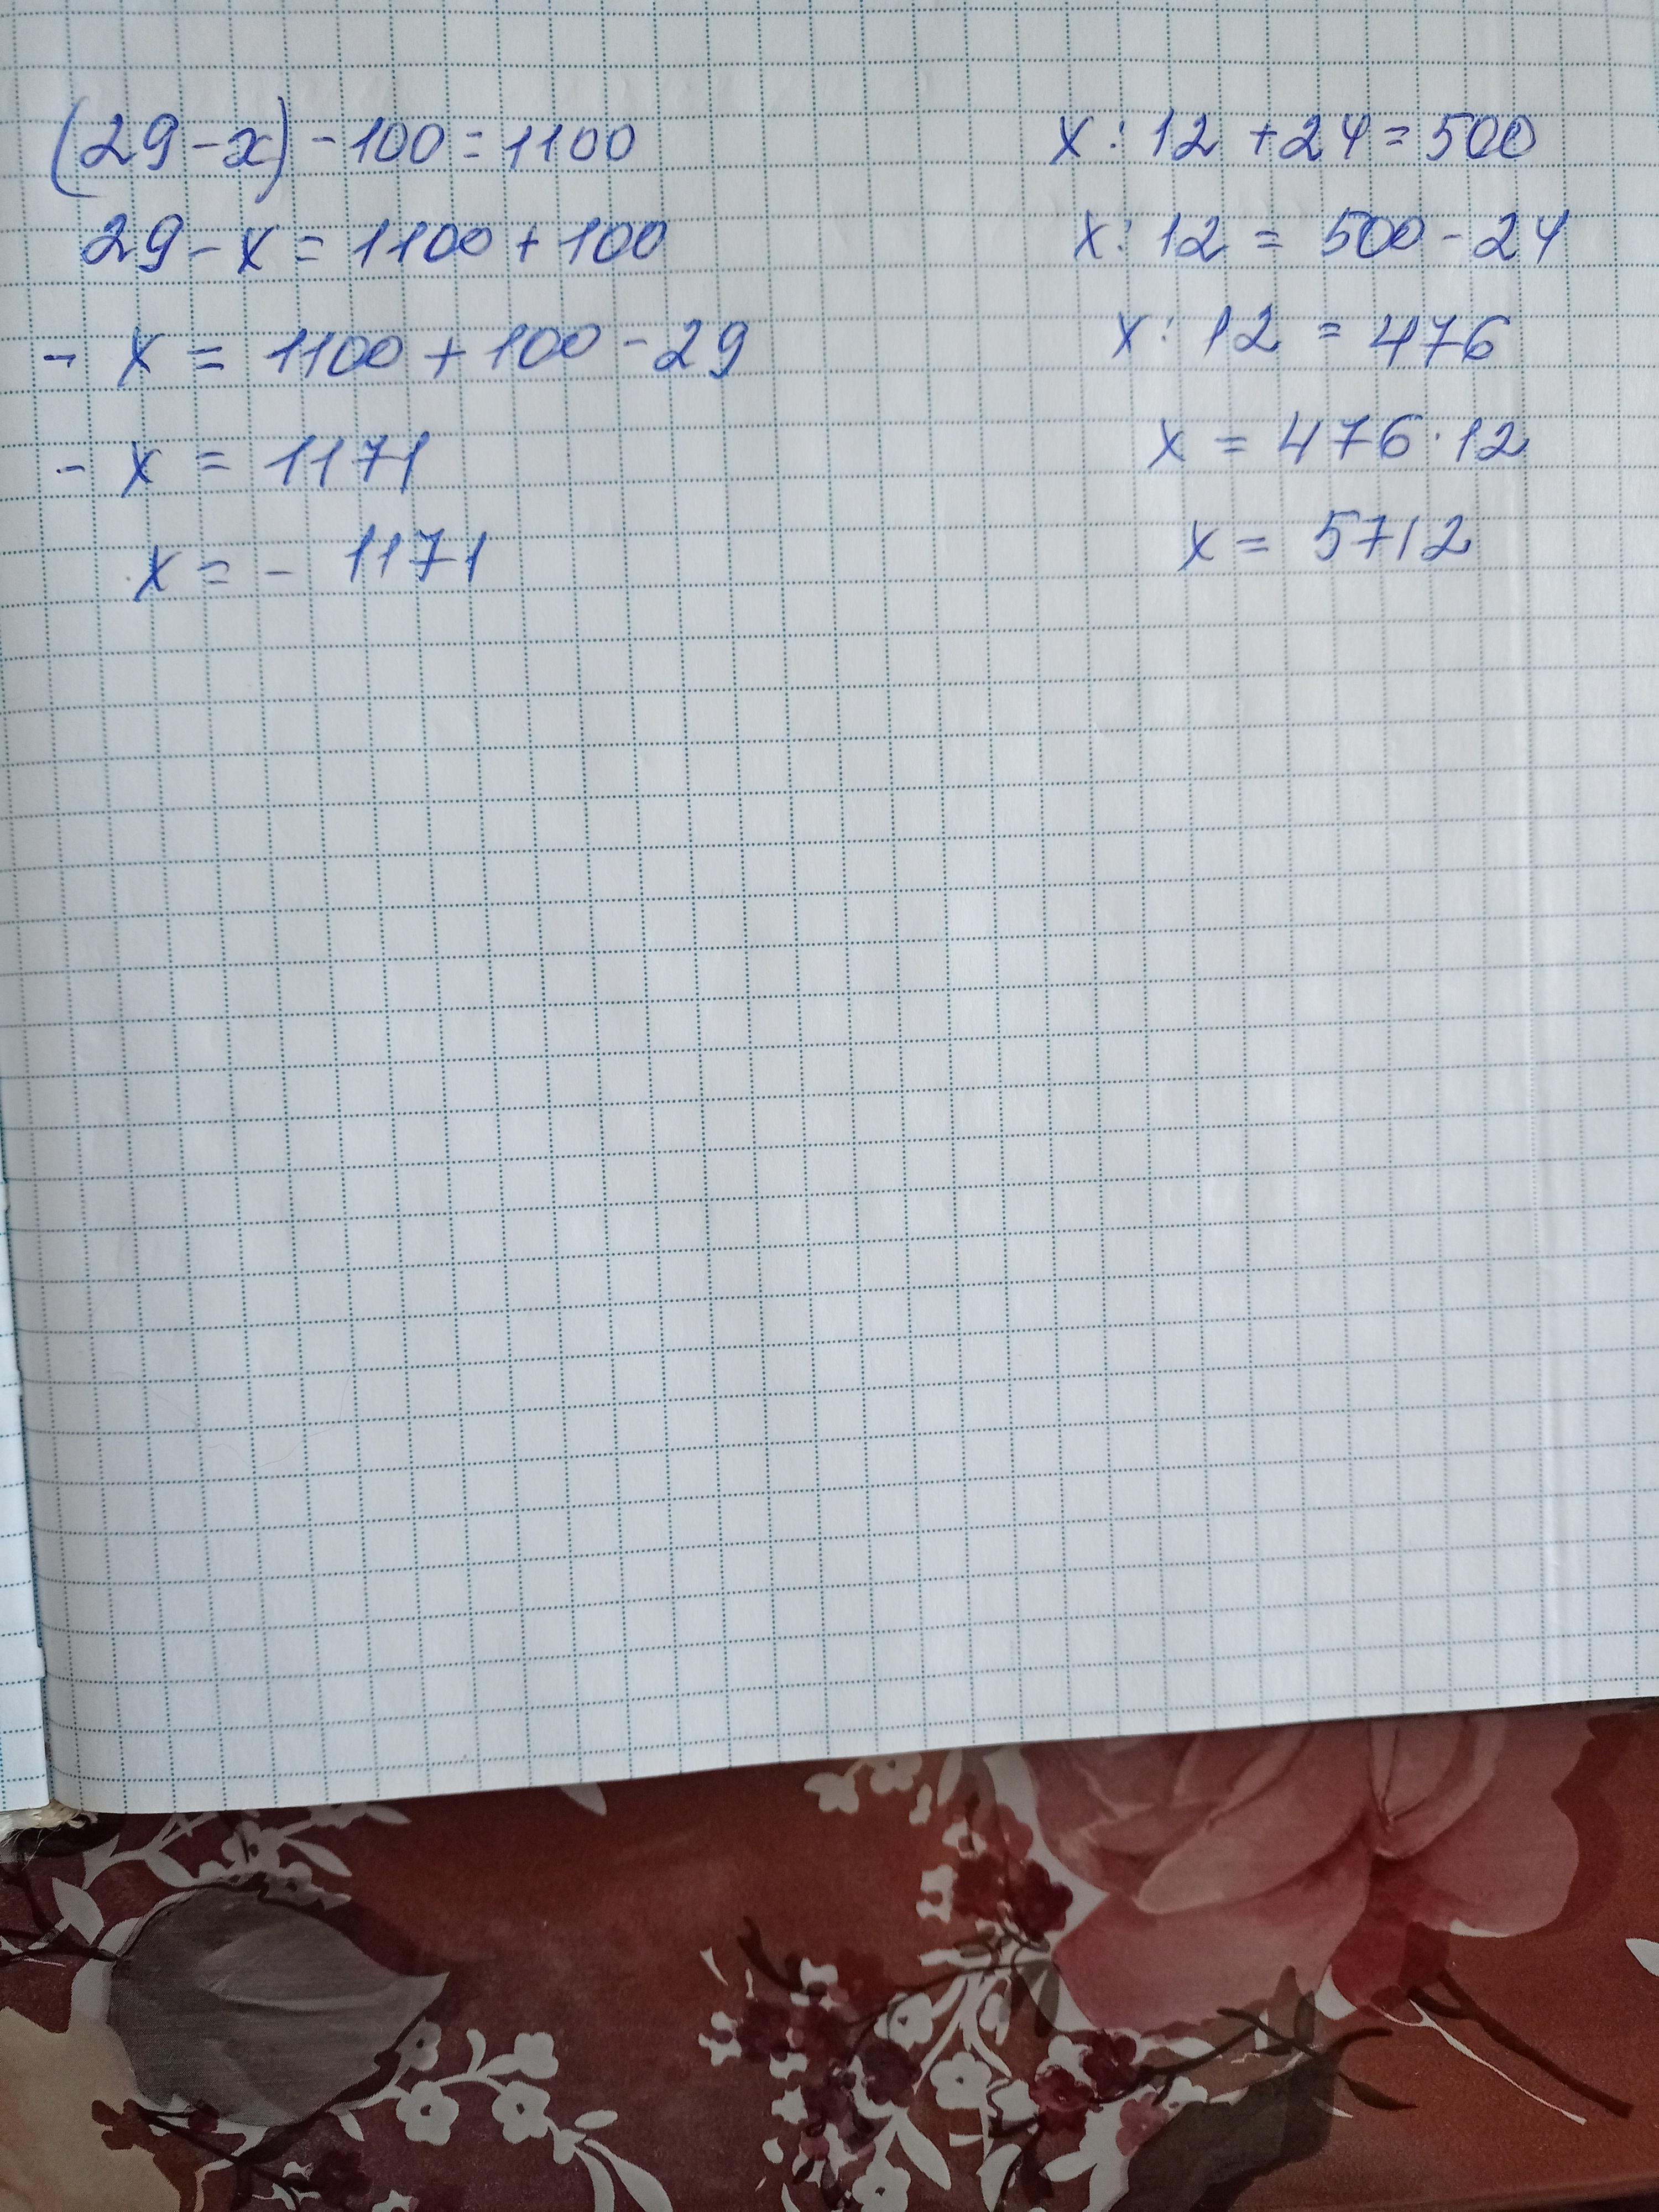 (29-x)-100=1100
29-x=1100+100
-x=1100+100-29
-x=1171
x=-1171
x:12+24=500
x:12=500-24
x:12=476
x=476·12
x=5712